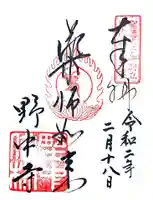 奉拝
令和二年
二月十八日
薬師如来
野中寺